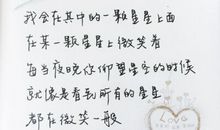 我会在其中的一颗星星上面
在某一颗星星上微笑着
每当夜晚你仰望星空的时候
就像是看到所有的星星
都在微笑一般
LOVE